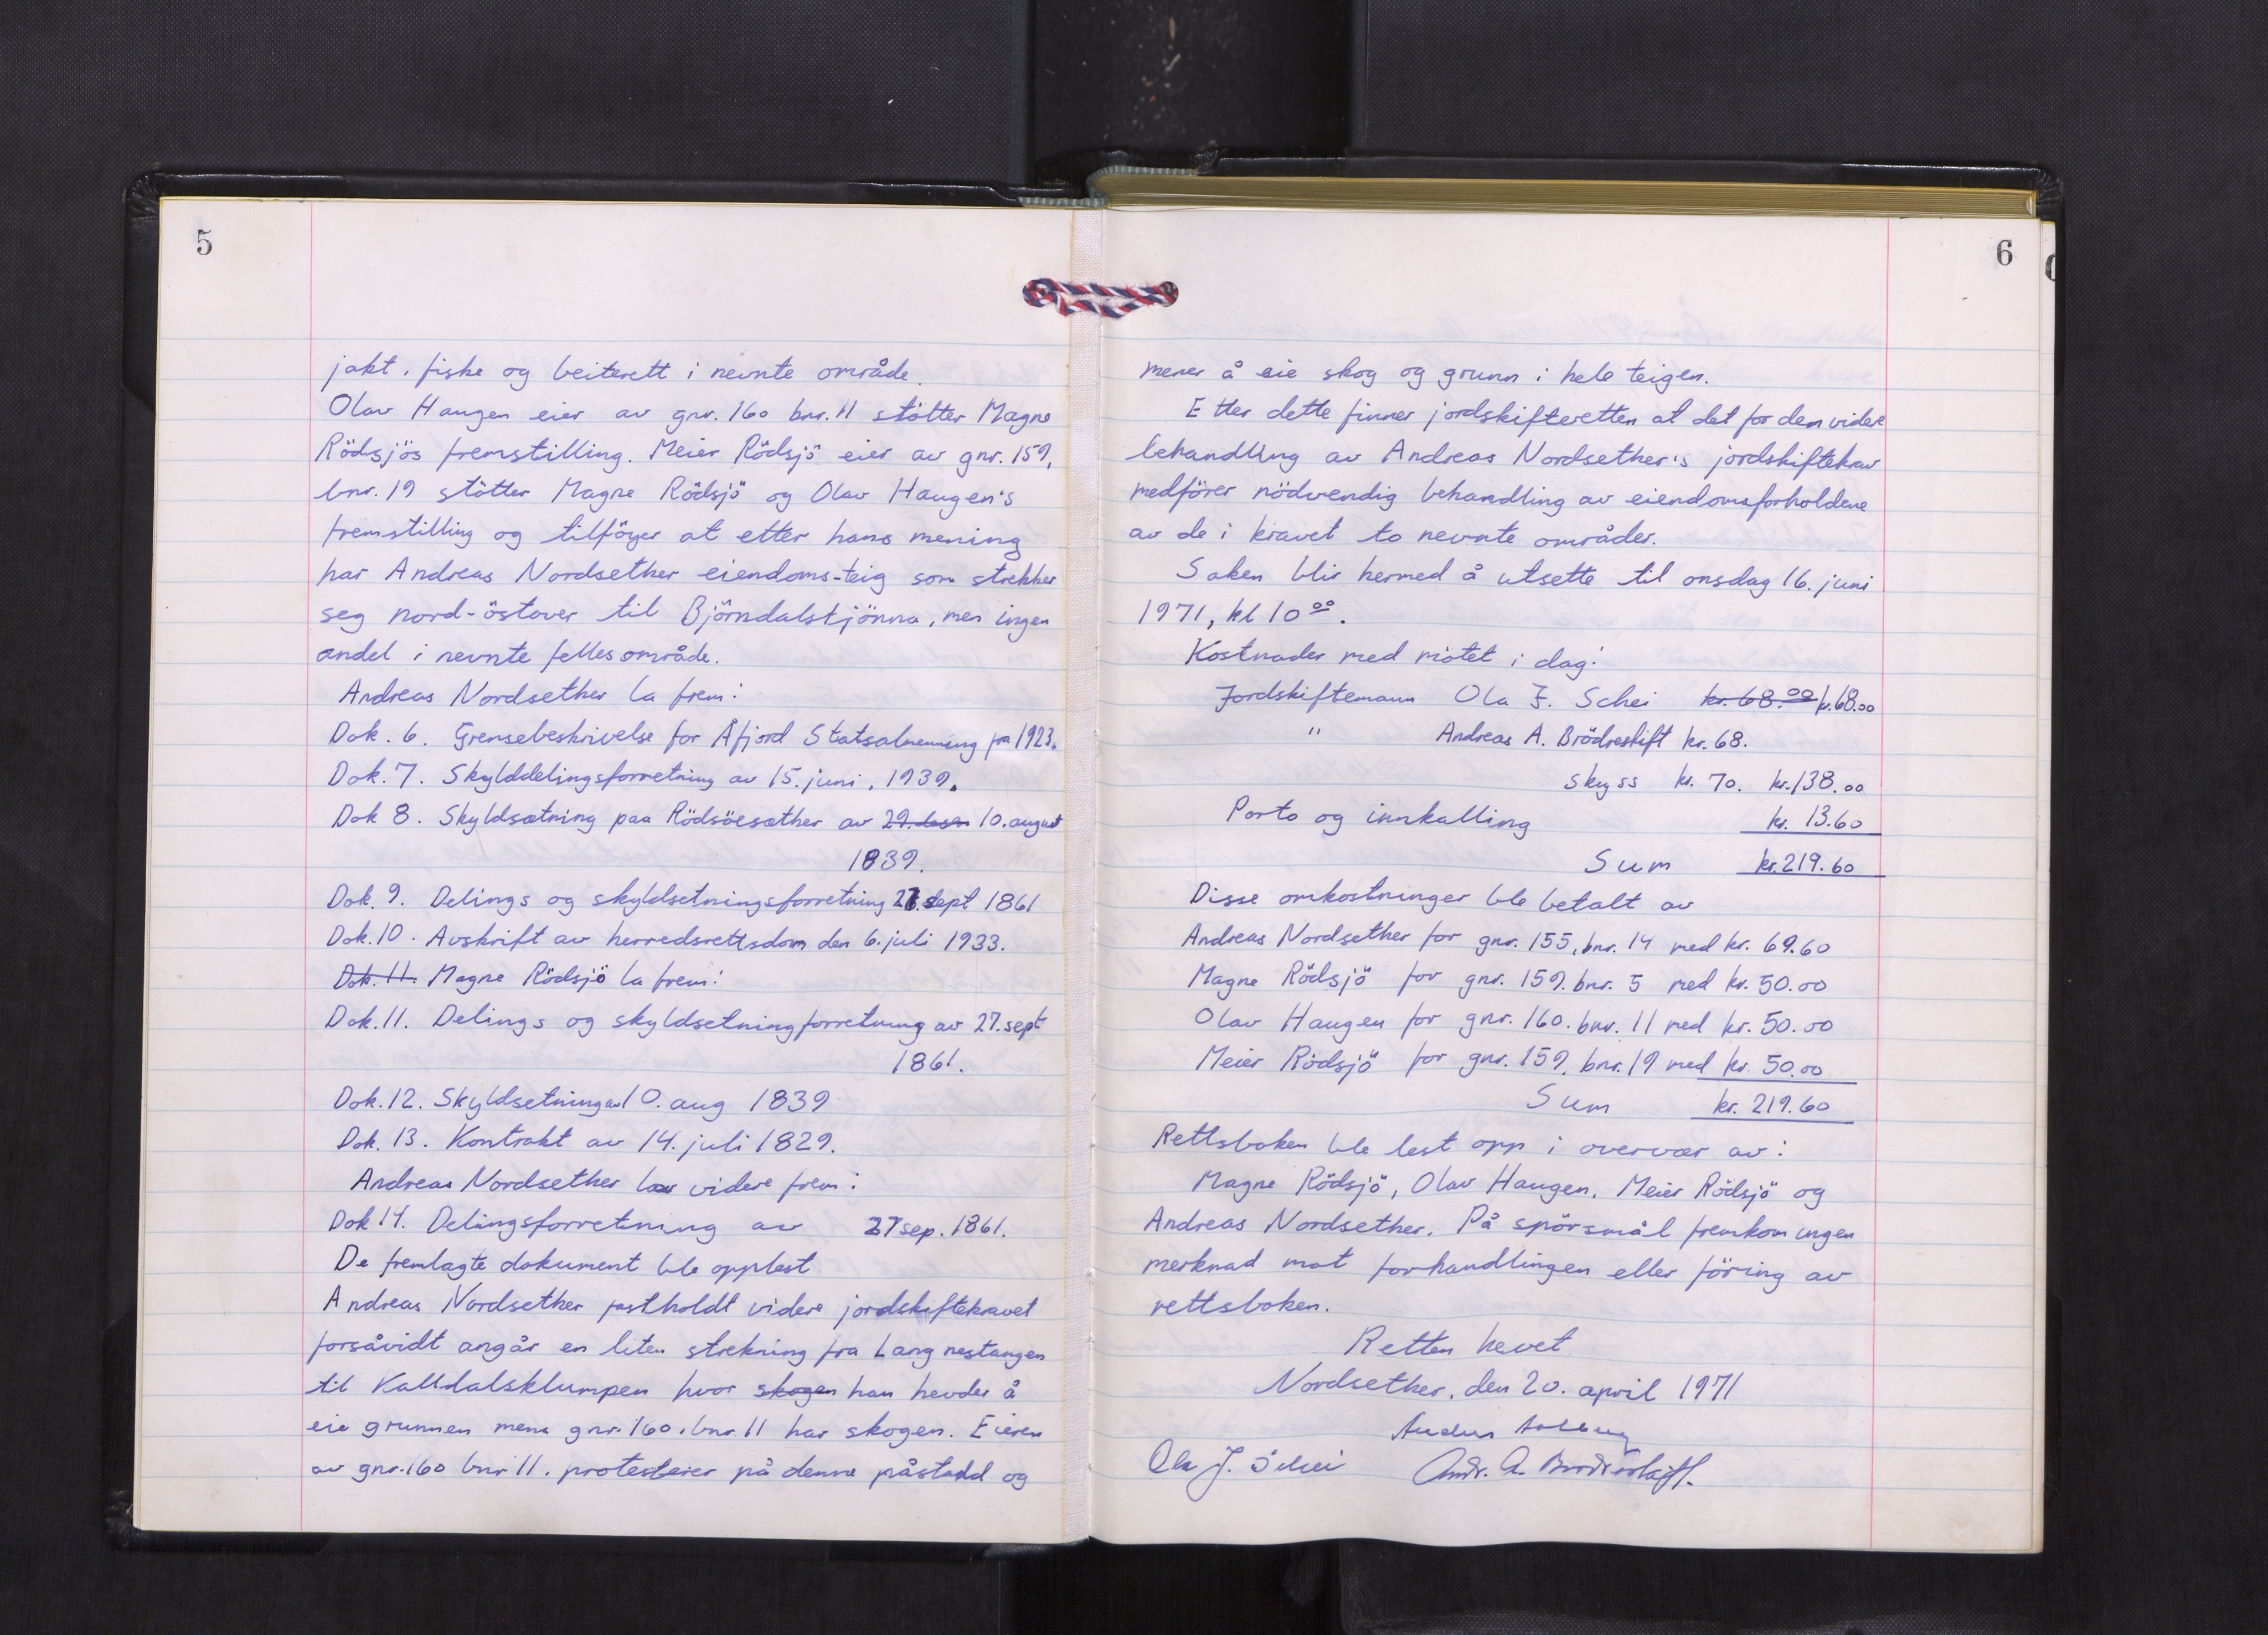 5
jakt, fiske og beiterett i nevnte område.
Olav Haugen eier av gnr. 160 bnr. 11 stötter Magne
Rödsjös fremstilling. Meier Rödsjö eier av gnr. 159,
bnr. 19 stötter Magne Rödsjö og Olav Haugen's
fremstilling og tilföyer at etter hans mening
har Andreas Nordsether eiendoms-teig som strekker
seg nord-östover til Björndalstjönna, men ingen
andel i nevnte felles område.
Andreas Nordsether la frem:
Dok. 6. Grensebeskrivelse for Åfjord Statsalmenning fra 1923.
Dok. 7. Skylddelingsforretning av 15. juni, 1939.
Dok 8. Skyldsætning paa Rödsöesæther av 29. desem 10. august
1839.
Dok. 9. Delings og skyldsetningsforretning 27. sept 1861
Dok. 10. Avskrift av herredsrettsdom den 6. juli 1933.
Dok. 11. Magne Rödsjö la frem:
Dok. 11. Delings og skyldsetningforretning av 27. sept
1861.
Dok. 12. Skyldsetning av 10. aug 1839
Dok. 13. Kontrakt av 14. juli 1829.
Andreas Nordsether la videre frem:
Dok 14. Delingsforretning av 27 sep. 1861.
De fremlagte dokument ble opplest
Andreas Nordsether fastholdt videre jordskiftekravet
forsåvidt angår en liten strekning fra Langnestangen
til Kalldalsklumpen hvor skogen han hevder å
eie grunnen mens gnr. 160, bnr. 11 har skogen. Eieren
av gnr. 160 bnr 11. protesterer på denne påstand og
6
mener å eie skog og grunn i hele teigen.
Etter dette finner jordskifteretten at det for den videre
behandling av Andreas Nordsether's jordskiftekrav
medförer nödvendig behandling av eiendomsforholdene
av de i kravet to nevnte områder.
Saken blir hermed å utsette til onsdag 16. juni
1971, kl 10 00.
Kostnader med mötet i dag:
Jordskiftemann Ola J. Schei kr. 68.00 kr. 68.00
" Andreas A. Brödreskift kr. 68.
Skyss kr. 70. kr. 138.00
Porto og innkalling kr. 13.60
Sum kr. 219.60
Disse omkostninger ble betalt av
Andreas Nordsether for gnr. 155, bnr. 14 med kr. 69.60
Magne Rödsjö for gnr. 159. bnr. 5 med kr. 50.00
Olav Haugen for gnr. 160. bnr. 11 med kr. 50.00
Meier Rödsjö for gnr. 159. bnr. 19 med kr. 50.00
Sum kr. 219.60
Rettsboken ble lest opp i overvær av:
Magne Rödsjö, Olav Haugen, Meier Rödsjö og
Andreas Nordsether. På spörsmål fremkom ingen
merknad mot forhandlingen eller föring av
rettsboken.
Retten hevet
Nordsether, den 20. april 1971
Ola J. Schei Andr. A. Brödreskift.